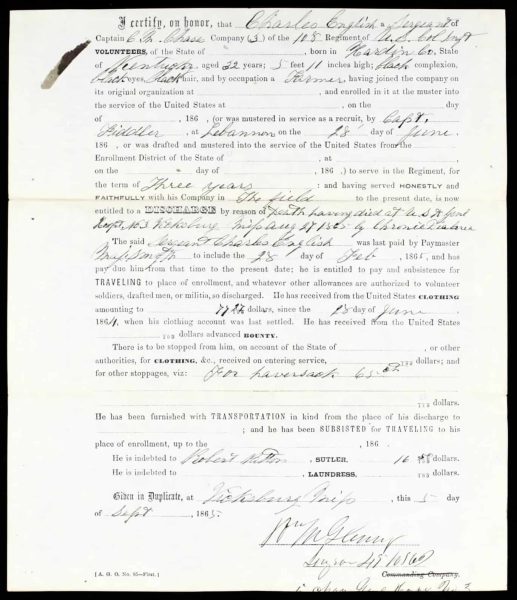 I certify, on honor, that Charles English a Sergeant of
Captain C. H. Chase Company (G) of the 108 Regiment of U.S. Col Inft
VOLUNTEERS, of the State of , born in Hardin Co, State
of Kentucky, aged 32 years; 5 feet 11 inches high; black complexion,
black eyes, black hair, and by occupation a Farmer having joined the company on
its original organization at , and enrolled in it at the muster into
the service of the United States at , on the day
of , 186 , (or was mustered in service as a recruit, by Capt.
Fiddler, at Lebannon on the 28 day of June,
186 , or was drafted and mustered into the service of the United States from the
Enrollment District of the State of , at
on the day of , 186 ,) to serve in the Regiment, for
the term of Three years : and having served HONESTLY and
FAITHFULLY with his Company in The field to the present date, is now
entitled to a DISCHARGE by reason of Death having died at U.S.
Hospt, No 3 Vicksburg Miss Aug 27 1865 by Chronic
The said Sergeant Charles English was last paid by Paymaster
Maj. Smith to include the 28 day of Feb , 1865, and has
pay due him from that time to the present date; he is entitled to pay and subsistence for
TRAVELING to place of enrollment, and whatever other allowances are authorized to volunteer
soldiers, drafted men, or militia, so discharged. He has received from the United States CLOTHING
amounting to dollars, since the 28 day of June
1864, when his clothing account was last settled. He has received from the United States
100 dollars advanced BOUNTY.
There is to be stopped from him, on account of the State of , or other
authorities, for CLOTHING, &c., received on entering service, 100 dollars; and
for other stoppages, viz: For haversack 65
100 dollars.
He has been furnished with TRANSPORTATION in kind from the place of his discharge to
; and he has been SUBSISTED for TRAVELING to his
place of enrollment, up to the , 186
He is indebted to Robert , SUTLER, 16 dollars.
He is indebted to , LAUNDRESS, 100 dollars.
Given in Duplicate, at Vicksburg Miss, this 5 day
of Sept , 1865.
Wm
Commanding Company.
[A. G. O. No. 95—First.]